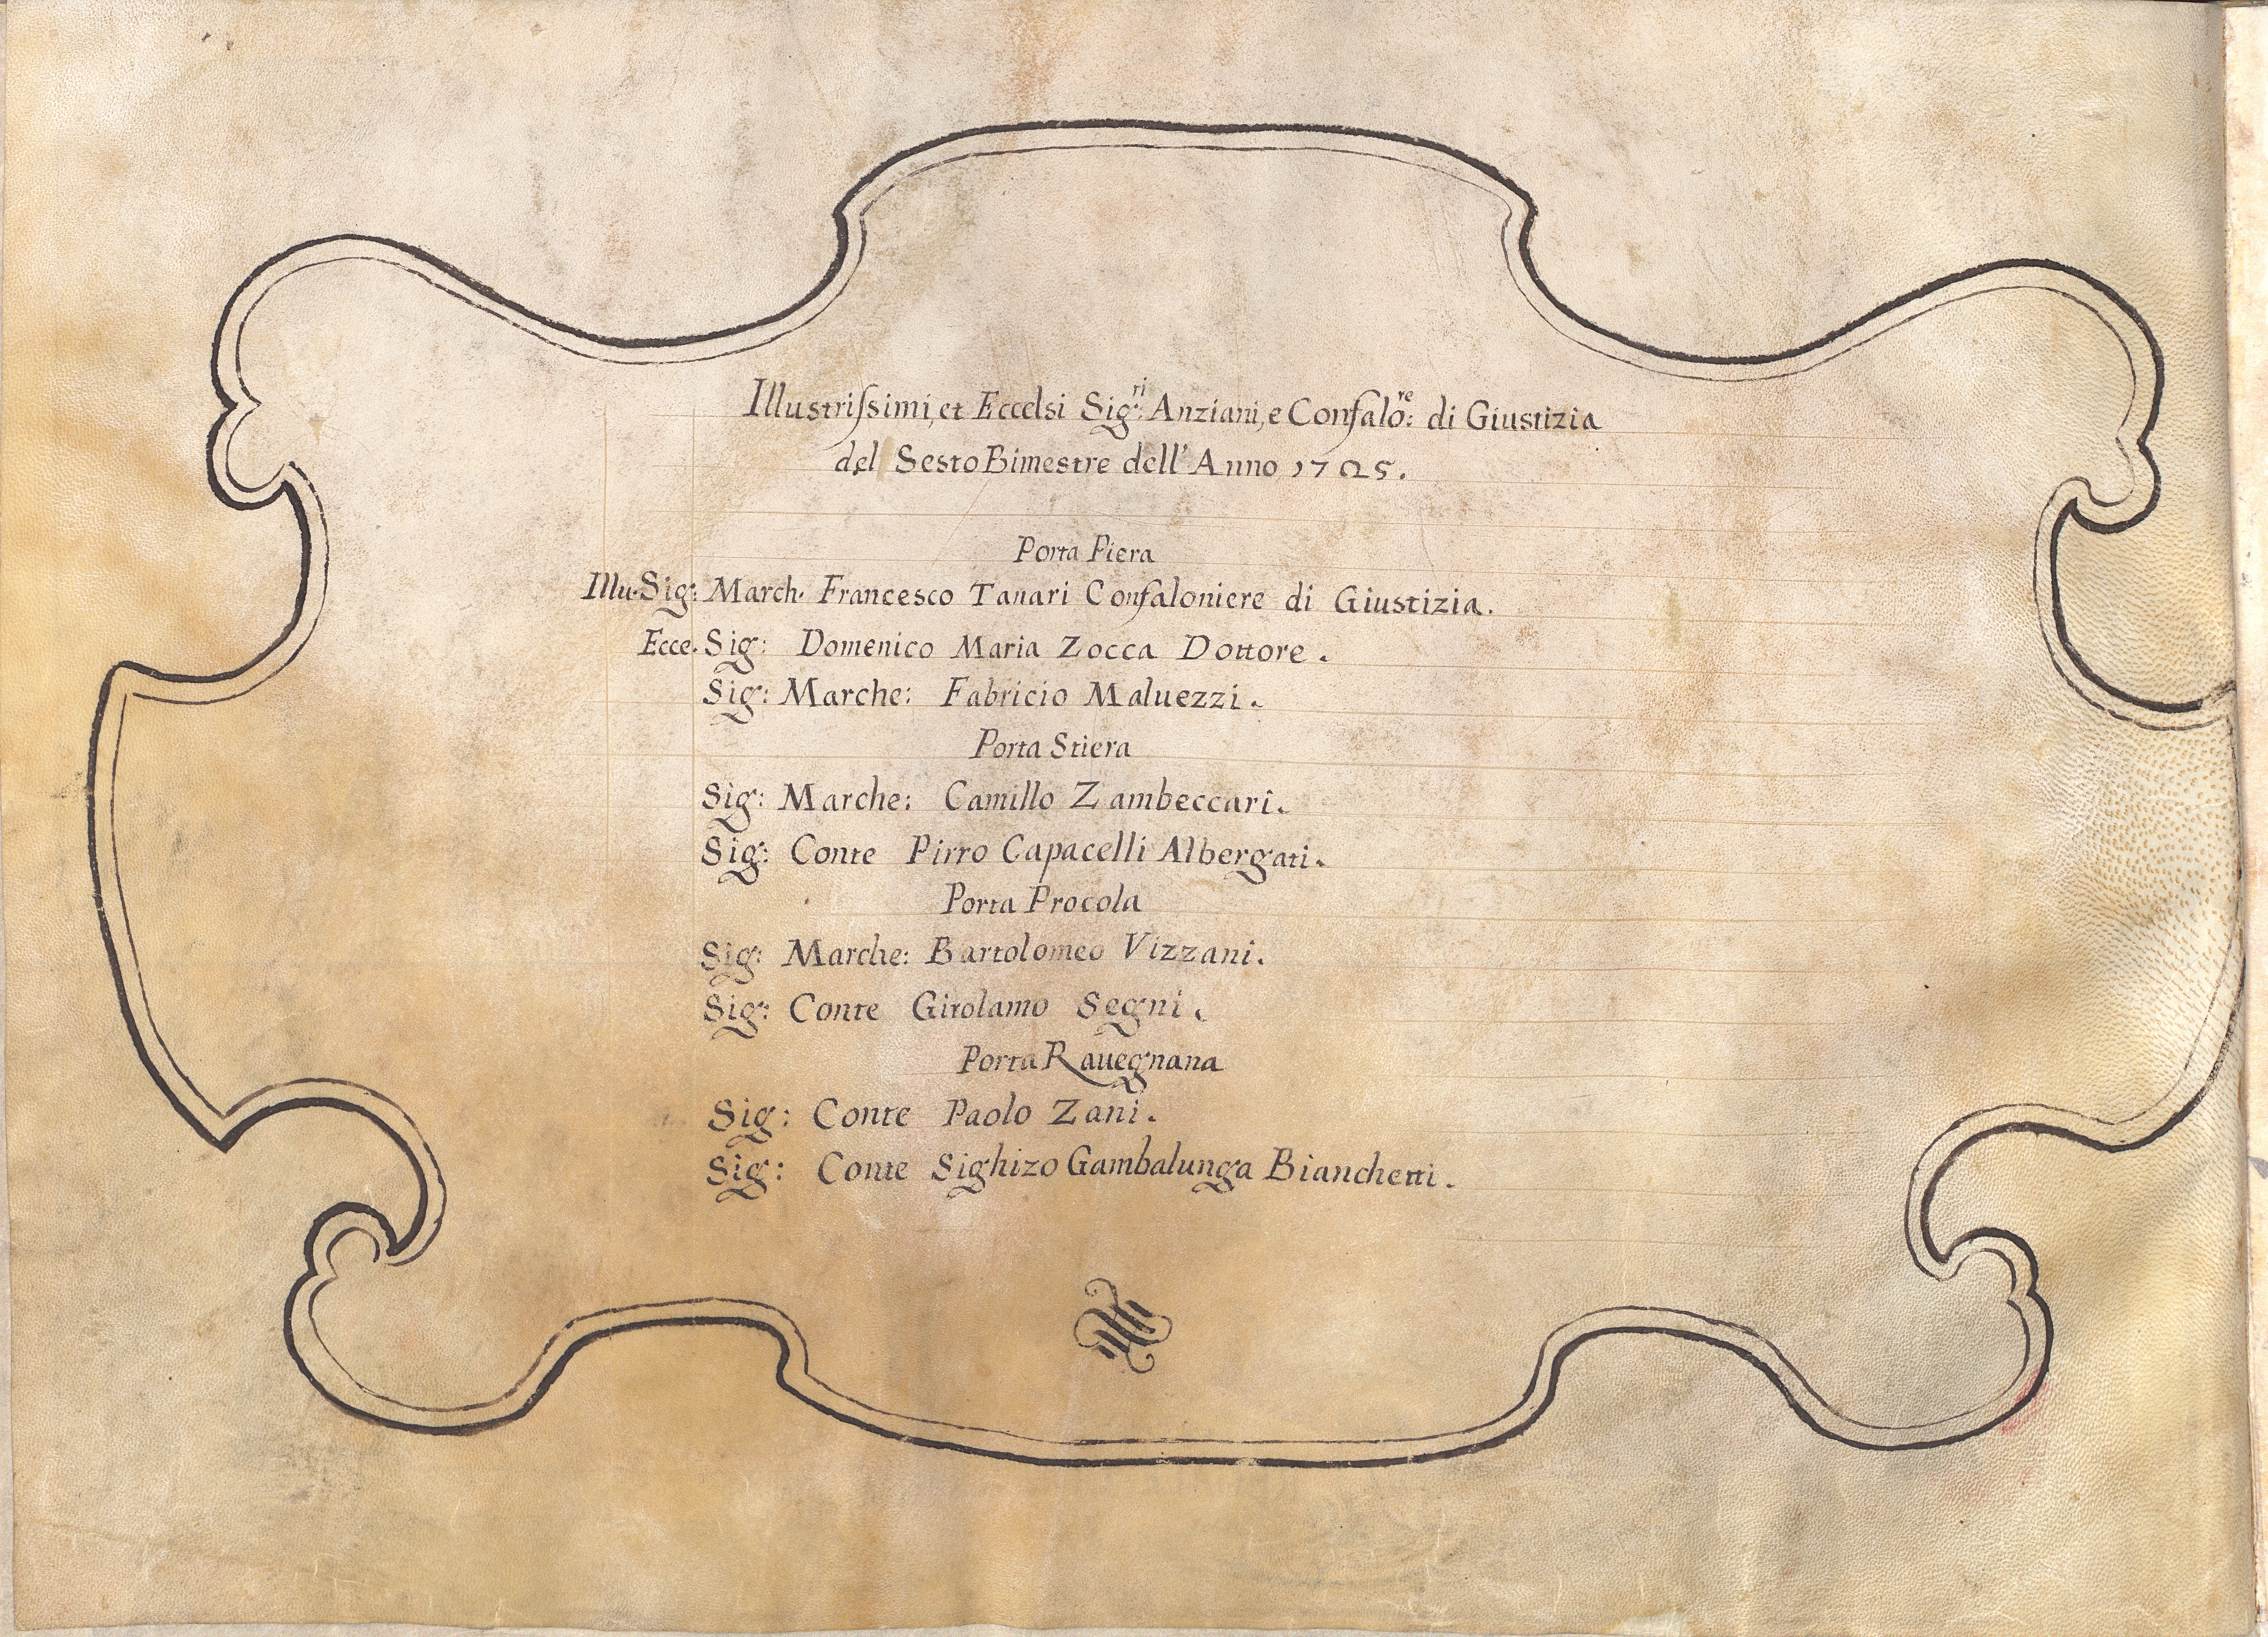 Illustriſsimi, et Eccelsi Sig:ri Anziani, e Confalo:re di Giustizia
del Sesto Bimestre dell' Anno 1725.
Porta Piera
Illu. Sig: March. Francesco Tanari Confaloniere di Giustizia.
Ecce. Sig: Domenico Maria Zocca Dottore.
Sig: Marche: Fabricio Maluezzi.
Porta Stiera
Sig: Marche: Camillo Zambeccari.
Sig: Conte Pirro Capacelli Albergati.
Porta Procola
Sig: Marche: Bartolomeo Vizzani.
Sig: Conte Girolamo Segni.
Porta Rauegnana
Sig: Conte Paolo Zani.
Sig: Conte Sighizo Gambalunga Bianchetti.